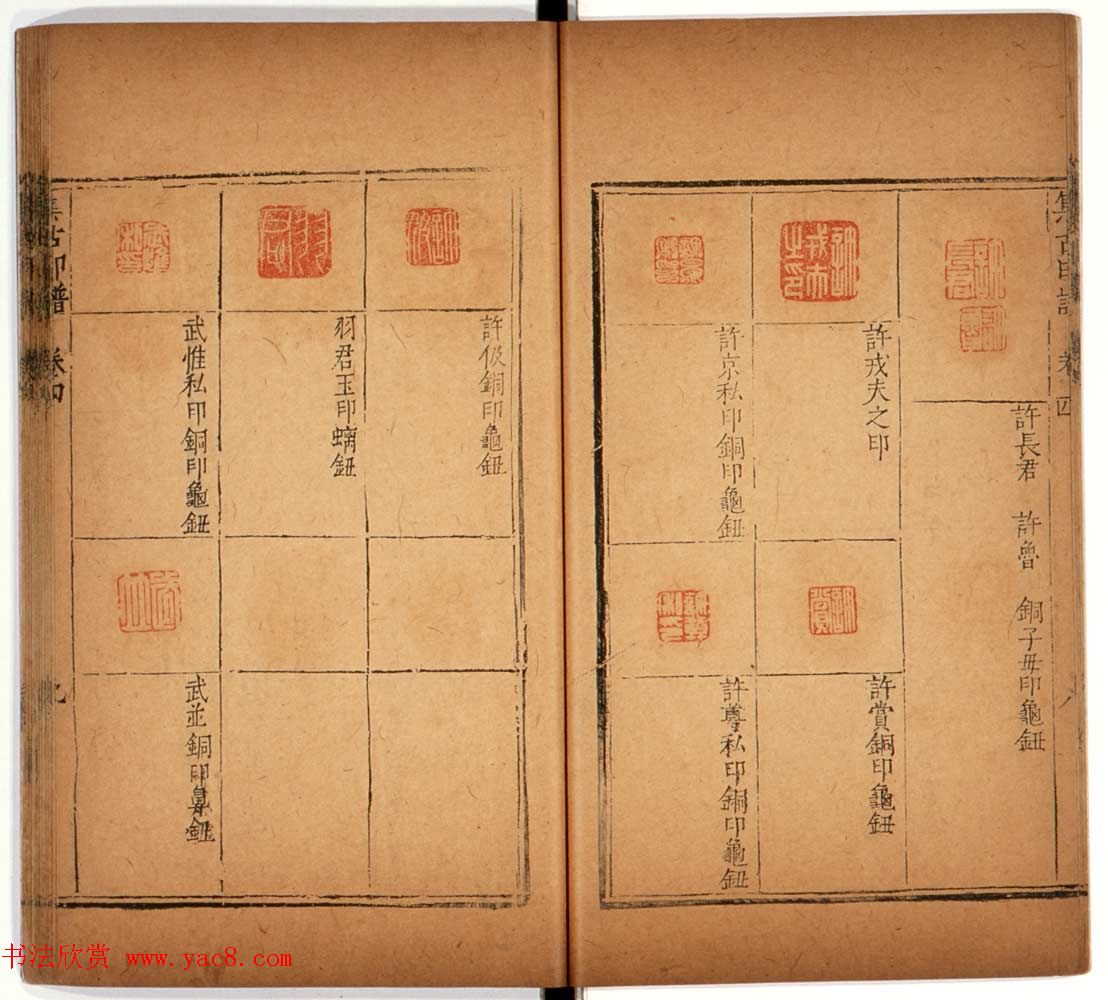 集古印譜 卷四
許長君 許魯 銅子母印龜鈕
許戎夫之印
許賞銅印龜鈕
許京私印銅印龜鈕
許尊私印銅印龜鈕
許伋銅印龜鈕
羽君玉印螭鈕
武惟私印銅印龜鈕
武並銅印鼻鈕
集古印譜 卷四
九
书法欣赏 www.yac8.com